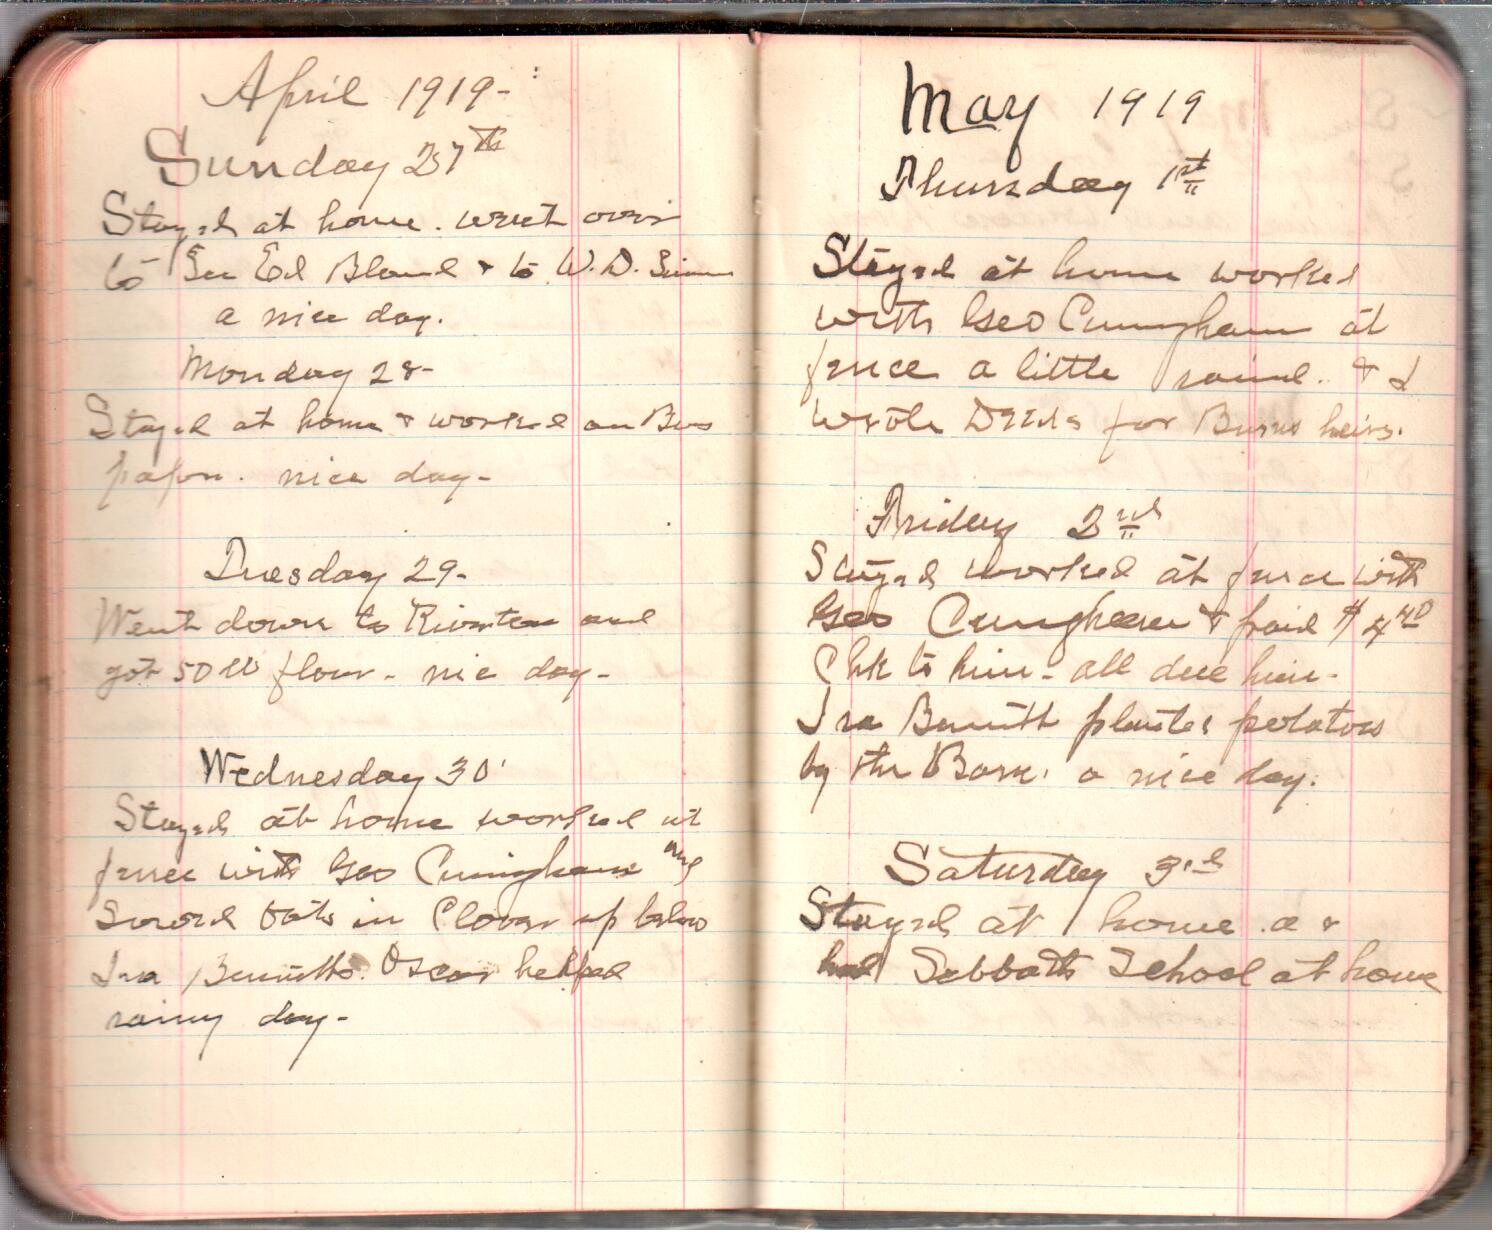 April 1919-
Sunday 27th
Stayed at home. went over
to see Ed Bland & to W. D.
a nice day.
Monday 28-
Stayed at home & worked on
nice day-
Tuesday 29-
Went down to Riverton and
got 50 lb flour - nice day-
Wednesday 30
Stayed at home worked at
fence with Geo Cuningham and
Sowed Oats in Clover up below
Ira Bennitts. Oscar helped
rainy day-
May 1919
Thursday 1st
Stayed at home worked
with Geo Cuningham at
fence a little rained. & I
wrote Deeds for Burns heirs.
Friday 2nd
Stayed worked at fence with
Geo Cuningham & paid $ 4 40
Chk to him - all due him-
Ira Bennitt planted potatoes
by the Barn. a nice day.
Saturday 3rd
Stayed at home a &
had Sabbath School at home